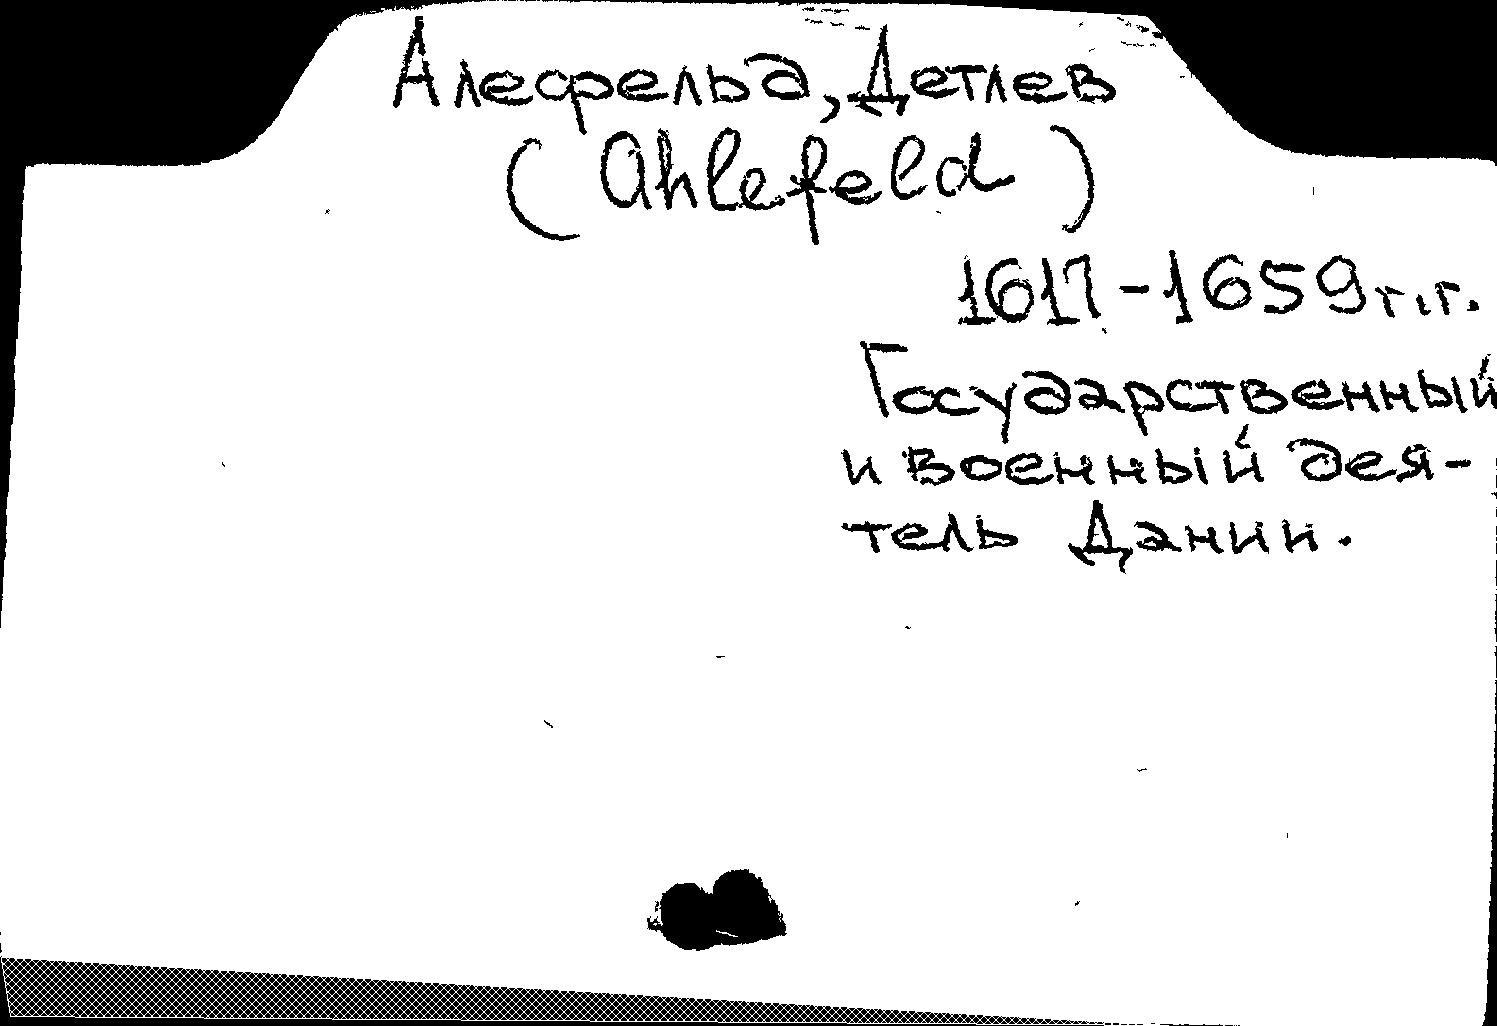 Алефельд, Детлев
(Ahlefeld)
1617-1659г.г.
Государственный
и военный дея-
тель Дании.